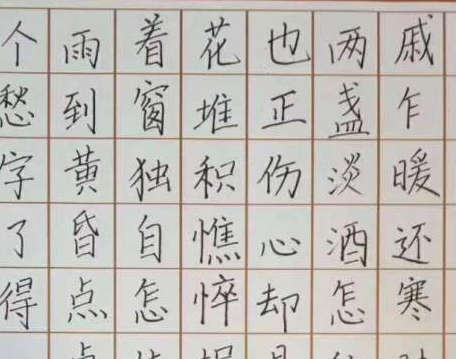 戚乍暖还寒
两盏淡酒怎
也正伤心却
花堆积憔悴
着窗独自怎
雨到黄昏点
个愁字了得